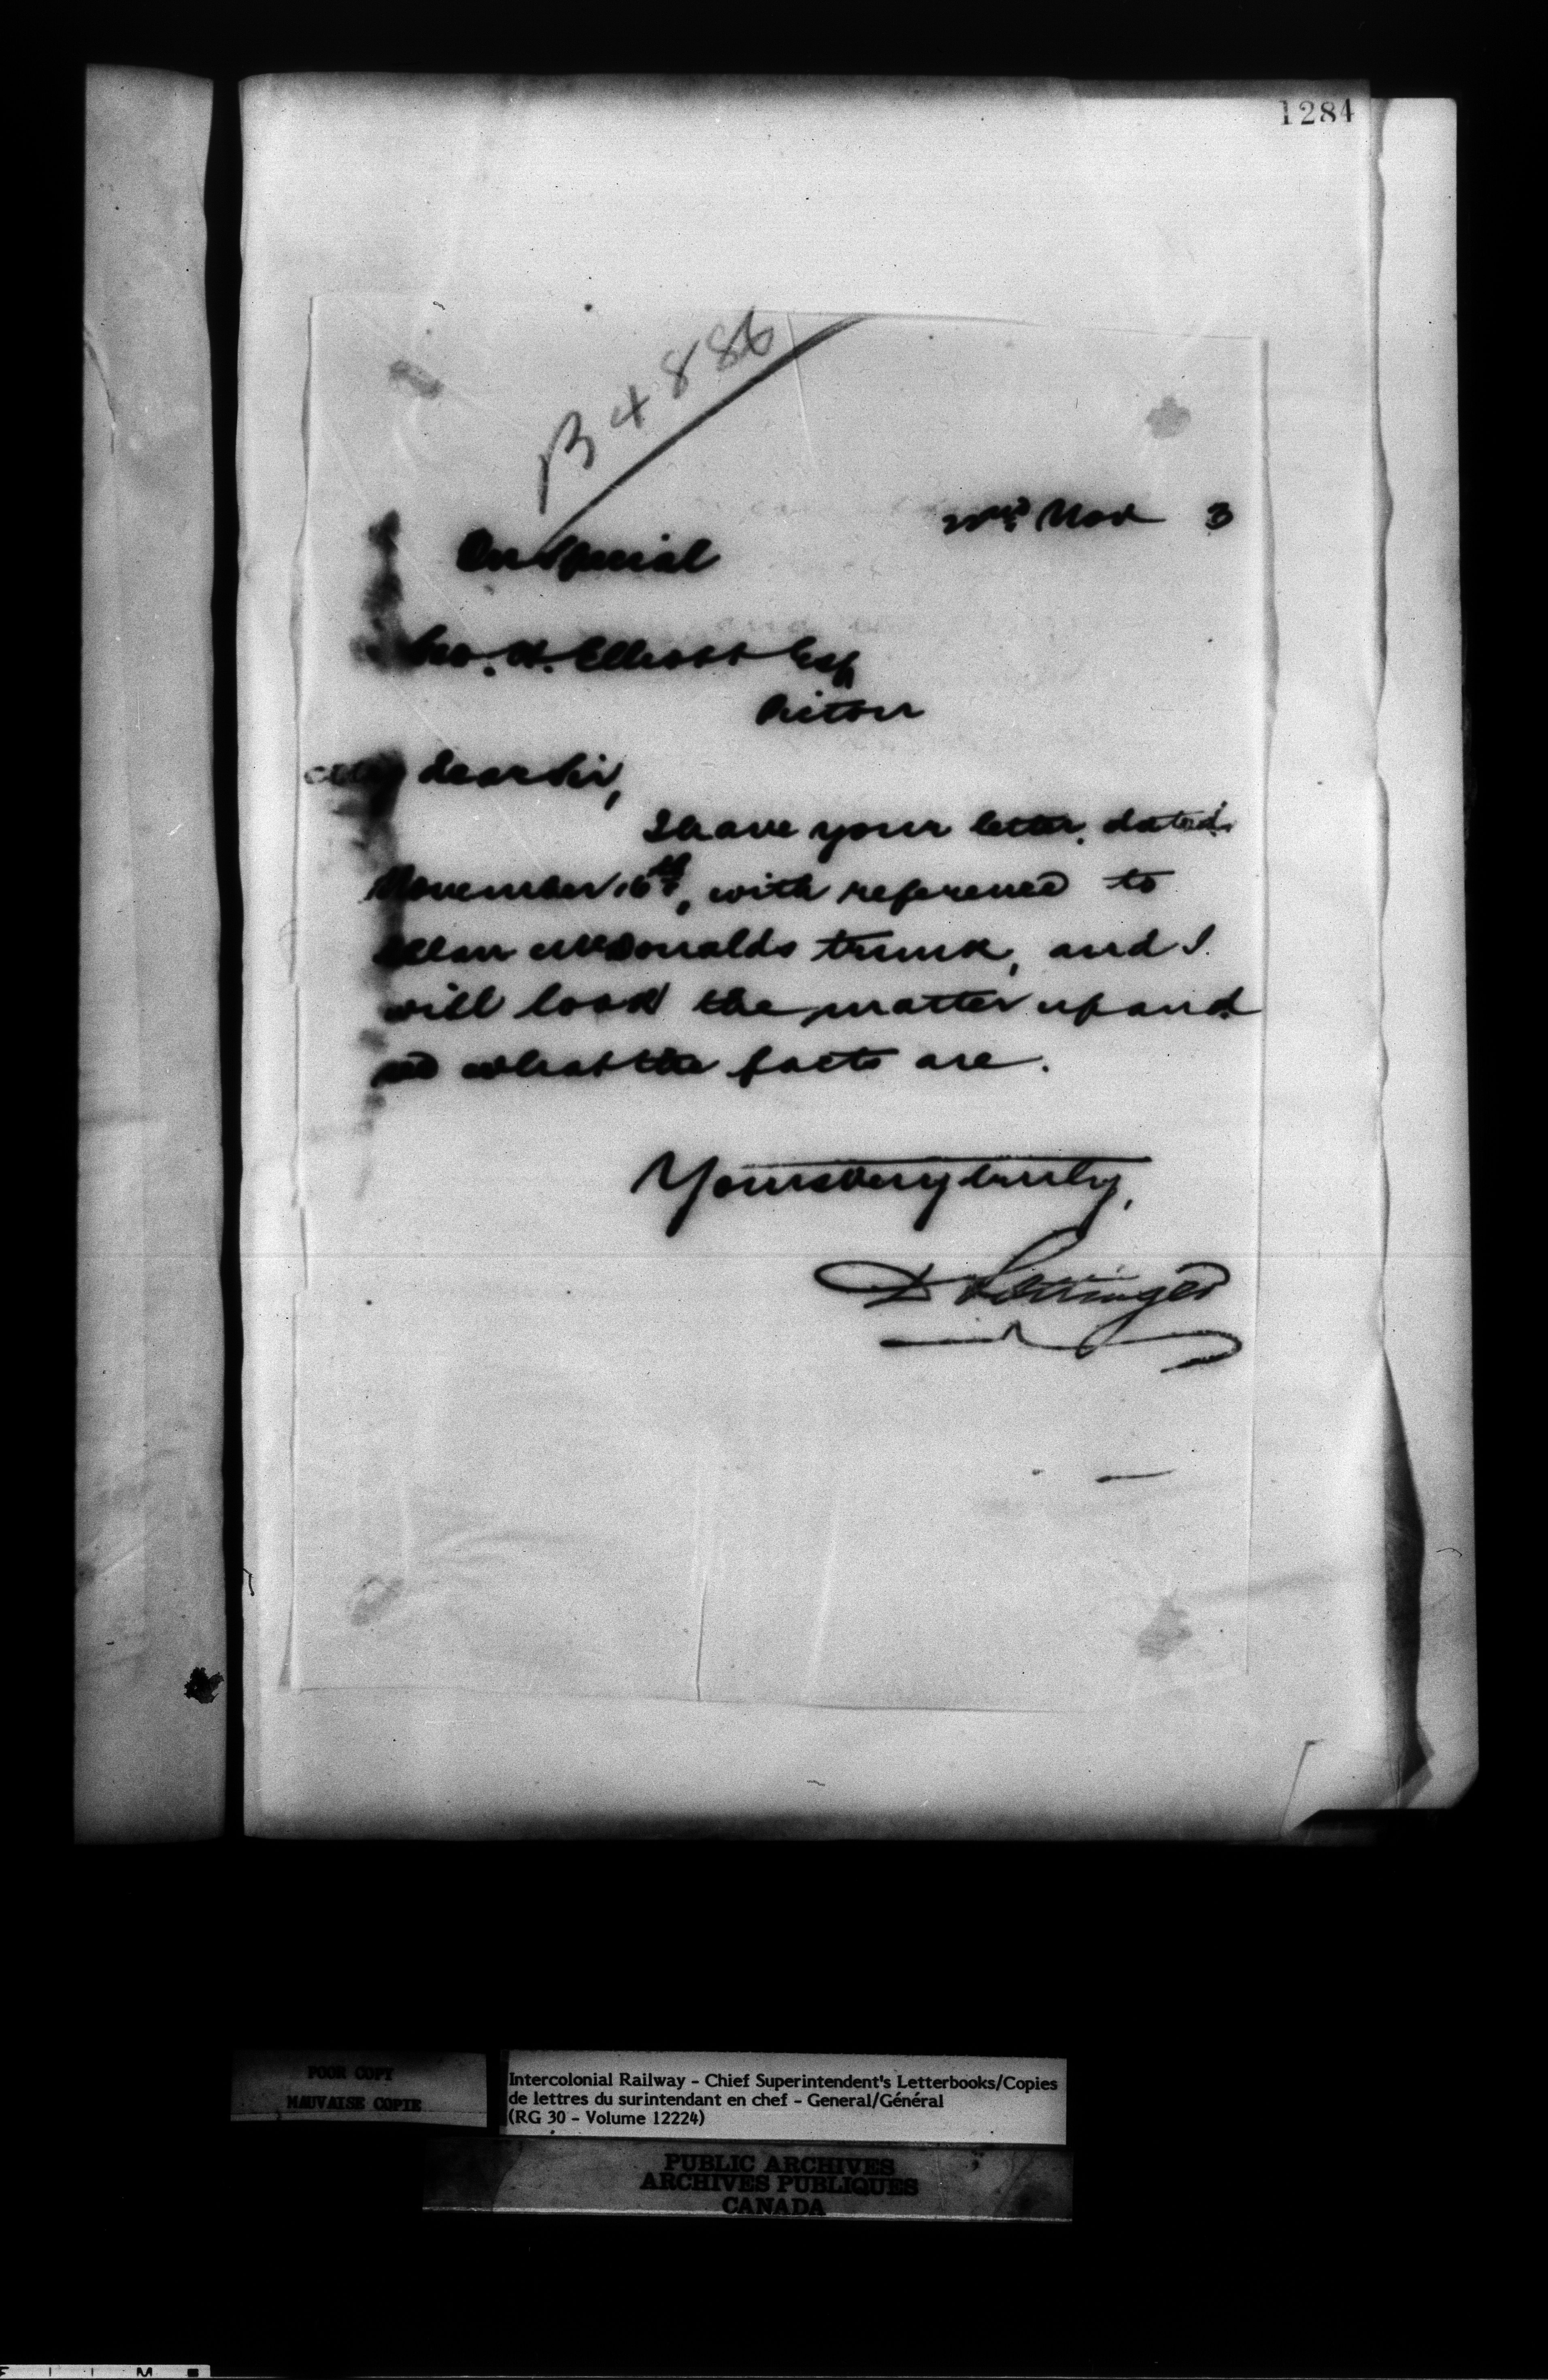 1284
B 4886
22nd Nov 3
On Special
Geo. H. Elliott Esq
Picton
My dear Sir,
I have your letter dated
November 16th, with reference to
Allan McDonalds trunk, and I
will look the matter up and
see what the facts are.
Yours very truly,
D Pottinger
POOR COPY
MAUVAISE COPIE
Intercolonial Railway - Chief Superintendent's Letterbooks/Copies
de lettres du surintendant en chef - General/Général
(RG 30 - Volume 12224)
PUBLIC ARCHIVES
ARCHIVES PUBLIQUES
CANADA